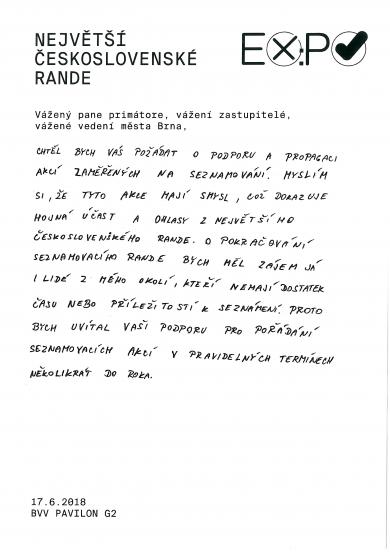 NEJVĚTŠÍ
ČESKOSLOVENSKÉ
RANDE
EX:PO
Vážený pane primátore, vážení zastupitelé,
vážené vedení města Brna,
CHTĚL BYCH VÁS POŽÁDAT O PODPORU A PROPAGACI
AKCÍ ZAMĚŘENÝCH NA SEZNAMOVÁNÍ. MYSLÍM
SI, ŽE TYTO AKCE MAJÍ SMYSL, COŽ DOKAZUJE
HOJNÁ ÚČAST A OHLASY Z NEJVĚTŠÍHO
ČESKOSLOVENSKÉHO RANDE. O POKRAČOVÁNÍ
SEZNAMOVACÍHO RANDE BYCH MĚL ZÁJEM JÁ
I LIDÉ Z MÉHO OKOLÍ, KTEŘÍ NEMAJÍ DOSTATEK
ČASU NEBO PŘÍLEŽITOSTÍ K SEZNÁMENÍ. PROTO
BYCH UVÍTAL VAŠI PODPORU PRO POŘÁDÁNÍ
SEZNAMOVACÍCH AKCÍ V PRAVIDELNÝCH TERMÍNECH
NĚKOLIKRÁT DO ROKA.
17.6.2018
BVV PAVILON G2